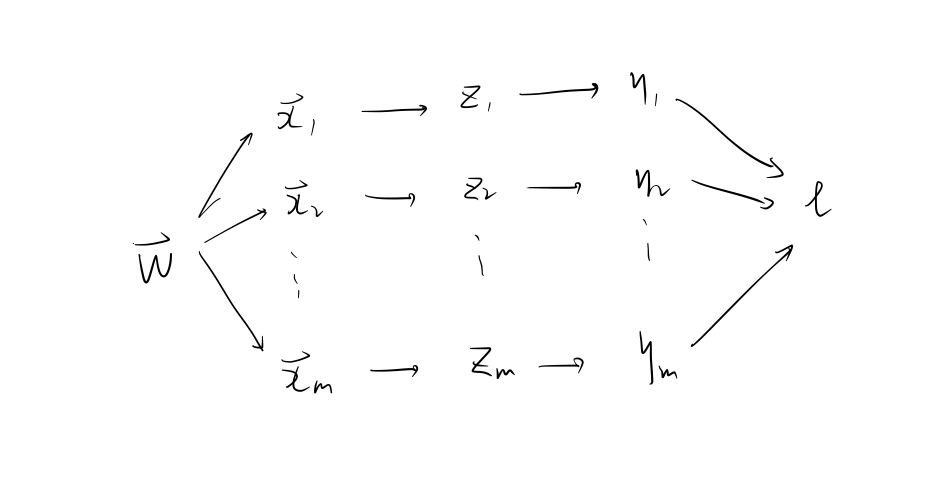 x⃗₁ → z₁ → η₁
x⃗₂ → z₂ → η₂
w⃗ ⋮ ⋮ ⋮ ℓ
x⃗ₘ → zₘ → ηₘ